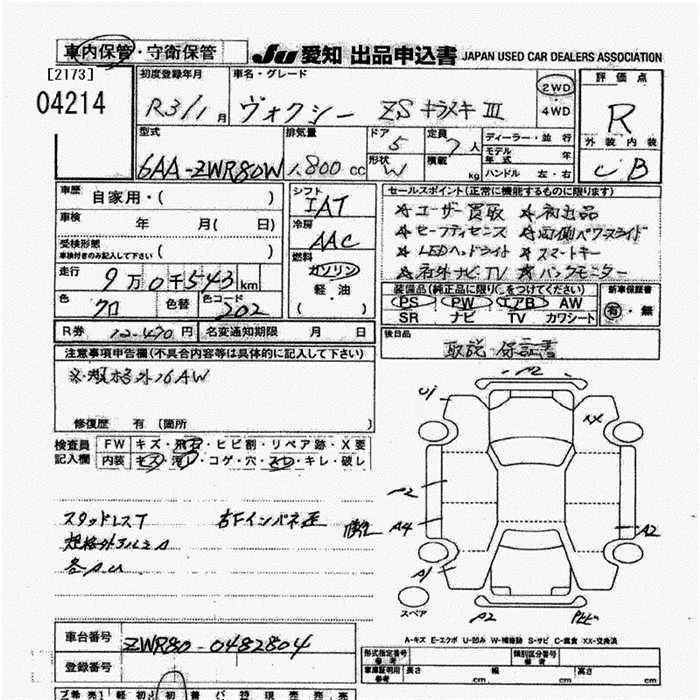 車内保管・守衛保管
JU 愛知 出品申込書 JAPAN USED CAR DEALERS ASSOCIATION
[2173]
04214
初度登録年月 車名・グレード 評価点
R3/1月 ヴォクシー ZS キラメキ III 2WD・4WD R
外装 内装
C B
型式 排気量 ドア 定員 ディーラー・並行
6AA-ZWR80W 1,800cc 5 7人
形状 積載 モデル年式 年
W kg ハンドル 左・右
車歴 自家用・( )
車検 年 月( 日)
受検形態
車検付きのみ記入して下さい ( )
走行 9万0千543km
色 クロ 色替 色コード 202
R券 12-470円 名変通知期限 月 日
シフト
IAT
冷房
AAC
燃料
ガソリン
・
軽・油
( )
セールスポイント(正常に機能するものに限ります)
☆ユーザー買取
☆セーフティセンス ☆両側パワースライド
☆LEDヘッドライト ☆スマートキー
☆社外ナビTV ☆バックモニター
装備品(純正品に限り○をつけてください) 新車保証書
PS PW エアB AW 有・無
SR ナビ TV カワシート
後日品
取説・保証書
注意事項申告欄(不具合内容等は具体的に記入して下さい)
※規格外16AW
修復歴 有 [箇所 ]
検査員記入欄 FW キズ・飛石・ヒビ割・リペア跡・X要
内装 キズ・汚レ・コゲ・穴・スレ・キレ・破レ
スタッドレスT
規格外アルミA
各A.U
A2
U1
XX
A4
A2
A1
スペア
A-キズ E-エクボ U-凹み W-補修跡 S-サビ C-腐食 XX-交換済
車台番号 ZWR80-0482804
登録番号
形式指定番号 参考 類別区分番号 参考
車庫証明用 参考 長さ cm 幅 cm 高さ cm